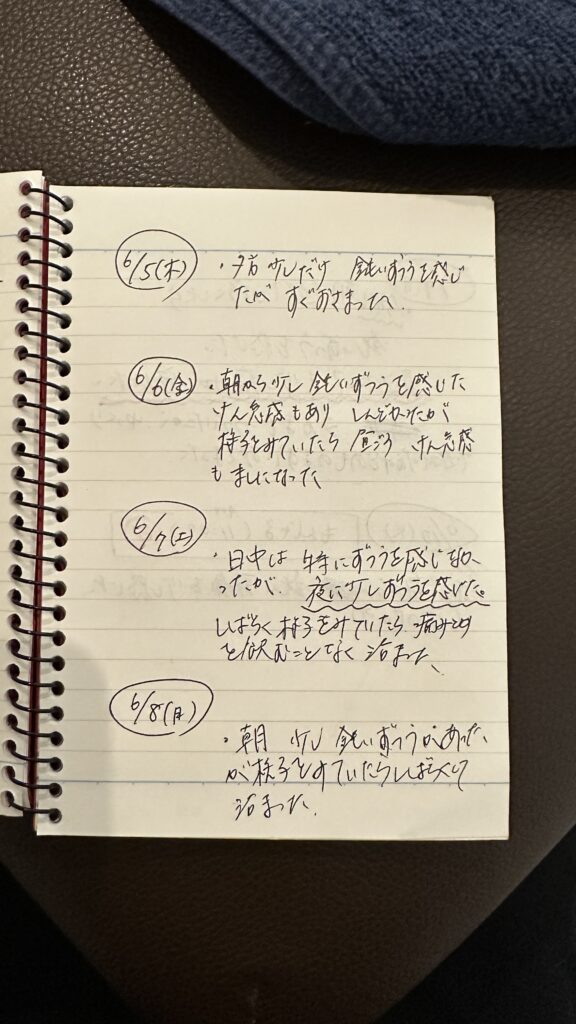 6/5(木)
・夕方 少しだけ 鈍いずつうを感じ
たが すぐおさまった。
6/6(金)
・朝から少し 鈍いずつうを感じた
けん怠感もあり しんどかったが
様子をみていたら 昼ごろ けん怠感
もましになった
6/7(土)
・日中は 特にずつうを感じなか
ったが、夜に少しずつうを感じた。
しばらく様子をみていたら 痛み止め
を飲むことなく 治まった、
6/8(月)
・朝 少し 鈍いずつうがあった
が様子をみていたらしばらくして
治まった.